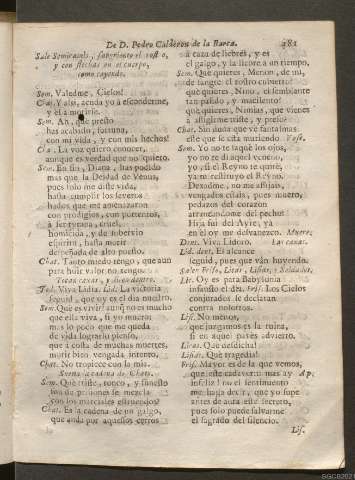 De D. Pedro Calderon de la Barca. 181
Sale Semiramis, sangriento el rostro,
y con flechas en el cuerpo,
como cayendo.
Sem. Valedme, Cielos!
Chat. Y assi, acuda yo à esconderme,
y el à morirse.
Sem. Ah, què presto
has acabado, fortuna,
con mi vida, y con mis hechos!
Cha. La voz quiero conocer,
aunque es verdad que no quiero.
Sem. En fin, Diana, has podido
mas que la Deidad de Venus,
pues solo me diste vida,
hasta cumplir los severos
hados que me amenazaron
con prodigios, con portentos,
à ser tyrana, cruel,
homicida, y de sobervio
espiritu, hasta morir
despeñada de alto puesto.
Chat. Tanto miedo tengo, que aun
para huir valor no tengo.
Tocan caxas, y dicen dentro.
Tod. Viva Lidia. Lid. La victoria
seguid, que oy es el dia nuestro.
Sem. Què es vivir? aunque no es mucho
que ella viva, si yo muero:
mas lo poco que me queda
de vida lograrlo pienso,
que à costa de muchas muertes,
morir bien vengada intento.
Chat. No tropiece con la mia.
Suena la cadena de Chato.
Sem. Què triste, ronco, y funesto
son de prisiones se mezcla
con los marciales estruendos?
Chat. Es la cadena de un galgo,
que anda por aquestos cerros
à caza de liebres, y es
el galgo, y la liebre à un tiempo.
Sem. Què quieres, Menon, de mi,
de sangre el rostro cubierto?
què quieres, Nino, el semblante
tan palido, y macilento?
què quieres, Ninias, que vienes
à afligirme triste, y preso?
Chat. Sin duda que vè fantasmas
este que se està muriendo. Vase.
Sem. Yo no te saquè los ojos,
yo no te dì aquel veneno,
yo, si el Reyno te quitè,
ya te restituyo el Reyno.
Dexadme, no me aflijais,
vengados estais, pues muero,
pedazos del corazon
arrancandome del pecho:
Hija fui del Ayre, ya
en èl oy me desvanezco. Muere.
Dent. Viva Lidoro. Las caxas.
Lid. dent. El alcance
seguid, pues que vàn huyendo.
Salen Friso, Licas, Lisias, y Soldados.
Lic. Oy es para Babylonia
infausto el dia. Fris. Los Cielos
conjurados se declaran
contra nosotros.
Lis. No menos,
que juzgamos es la ruina,
si en aquel paves advierto.
Licas. Què desdicha!
Lisias. Què tragedia!
Fris. Mayor es de la que vemos,
que este cadaver mas ay Ap.
infeliz! no el sentimiento
me haga decir, que yo supe
antes de aora este secreto,
pues solo puede salvarme
el sagrado del silencio.
Lis.